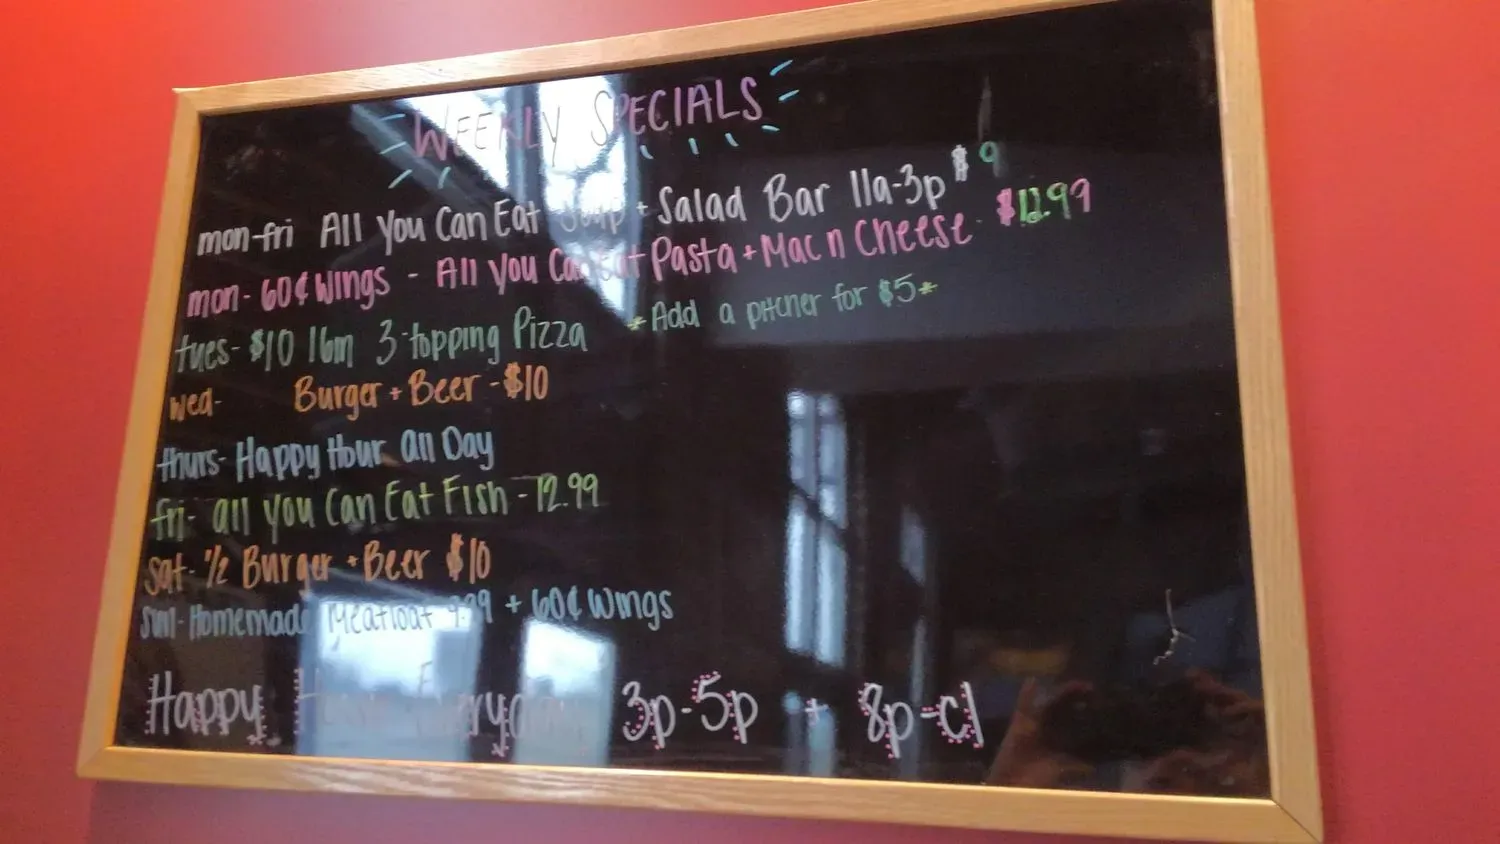 WEEKLY SPECIALS
mon-fri All You Can Eat Soup + Salad Bar 11a-3p $9
mon- 60¢ Wings - All you Can Eat Pasta + Mac n Cheese - $12.99
tues- $10 16in 3-topping Pizza *Add a pitcher for $5*
wed- Burger + Beer - $10
thurs- Happy Hour all Day
fri- all you Can Eat Fish - 12.99
Sat- 1/2 Burger + Beer $10
Sun- Homemade Meatloaf 9.99 + 60¢ Wings
Happy Hour Everyday 3p-5p + 8p-cl